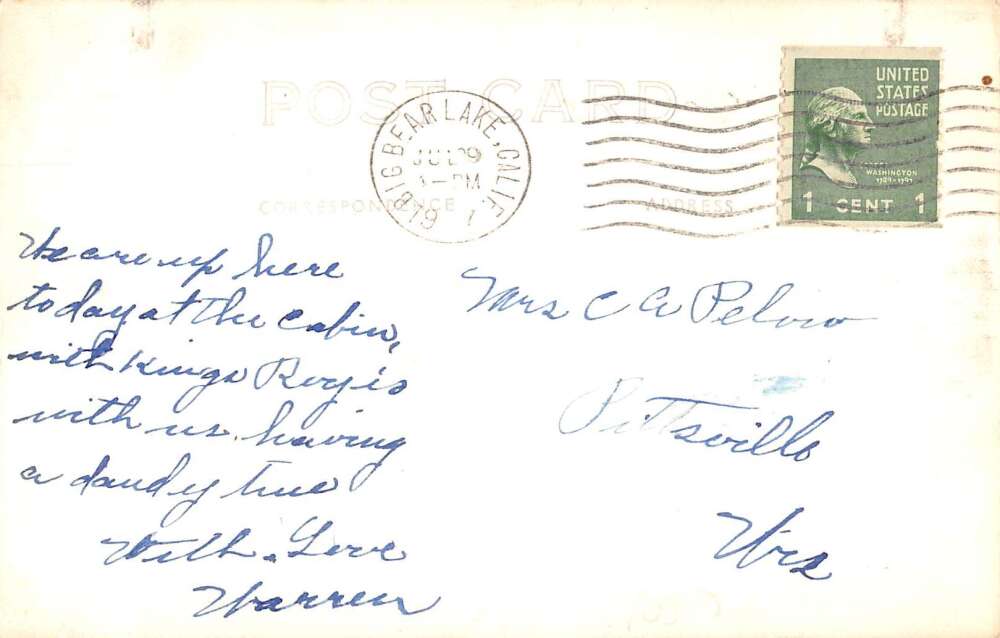 POST CARD
BIG BEAR LAKE, CALIF.
JUL 9
1-PM
UNITED
STATES
POSTAGE
WASHINGTON
1789-1797
1 CENT 1
CORRESPONDENCE
ADDRESS
We are up here
today at the Cabin,
with Kings Roy is
with us. having
a dandy time
With Love
Warren
Mrs C A Pelow
Pittsville
Wis